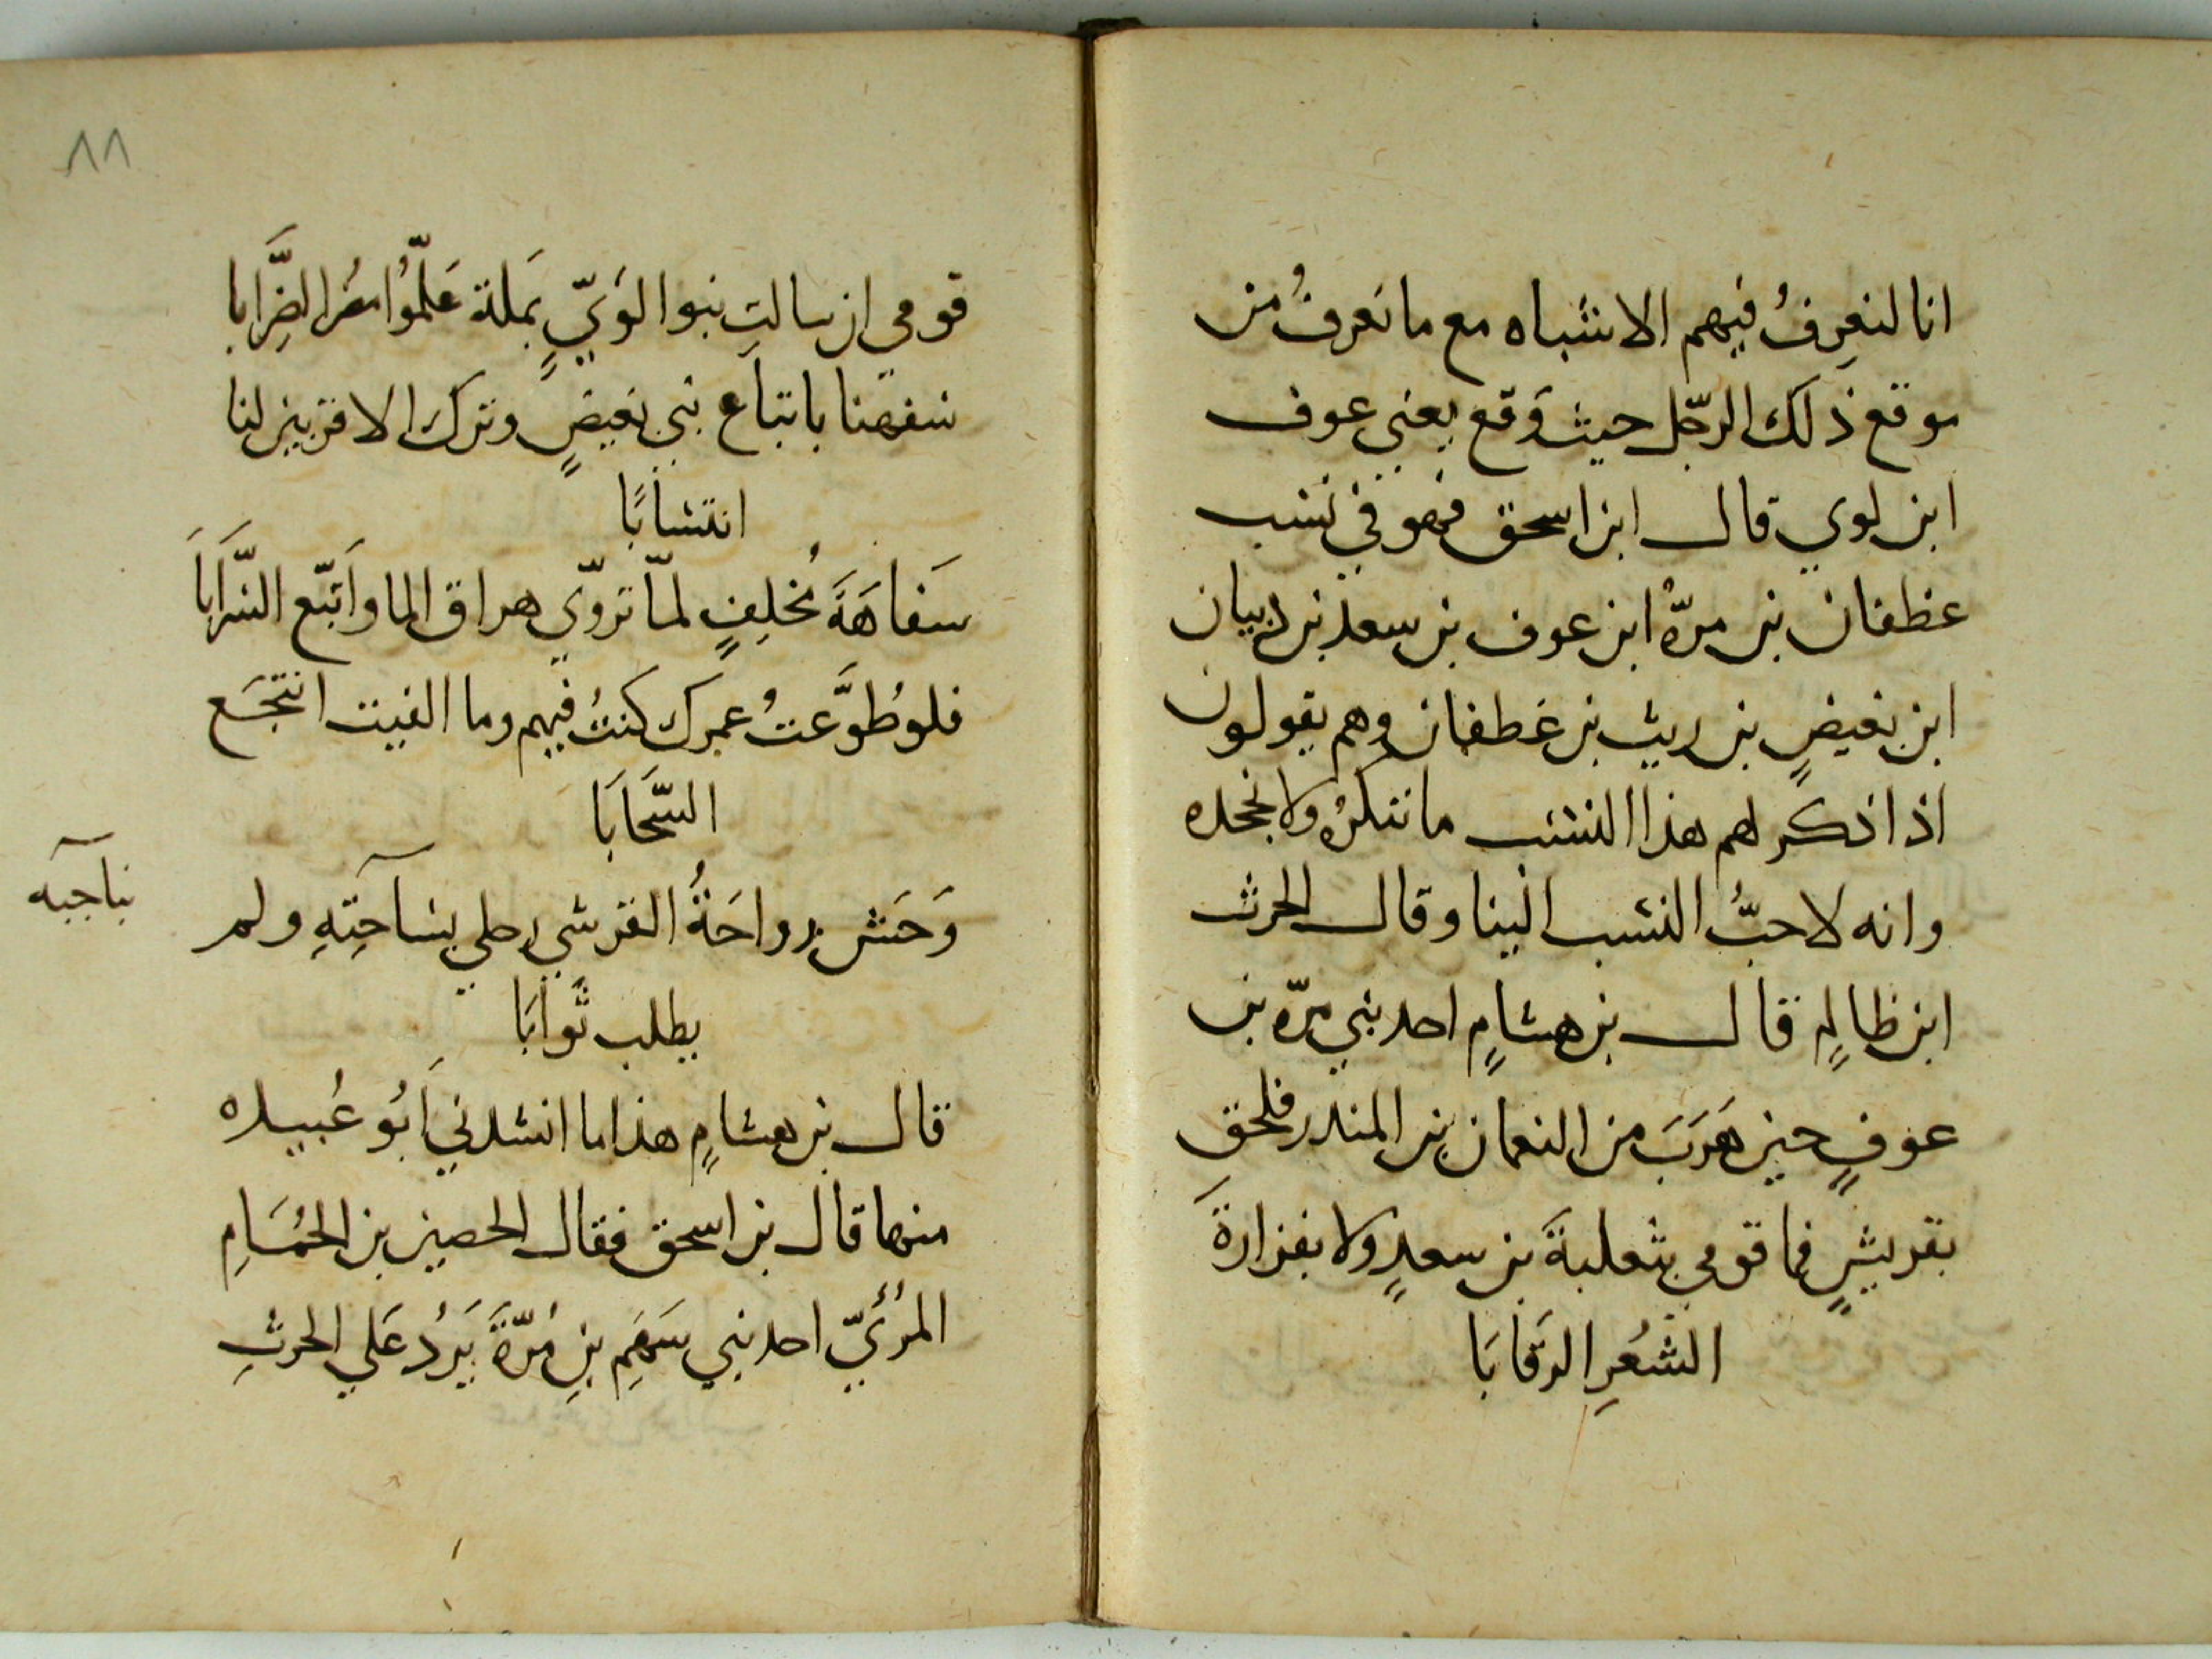 انا لنعرفُ فيهم الاشباه مع ما نعرفُ من
موقع ذلك الرجّل حيث وَقع يعني عوف
ابن لوي قال ابن اسحق فهو في نسَب
غظفان بن مرّةْ ابن عوف بن سعد بن ذبيان
ابن بغيضٍ بن ريث بن غطفان وهم يقولون
اذا ذكر لهم هذا النسَب ما ننكرُه ولا نجحده
وانه لاحبُّ النسَب الينا وقال الحرث
ابن ظالمٍ قال بن هشامٍ احد بني مرّه بن
عوفٍ حين هَرَبَ من النعمان بن المندر فلحق
بقريشٍ فما قومي بثعلبةَ بن سعدٍ ولا بفزارةَ
الشعُرِ الرقَابَا
٨٨
قومي ان سالتِ بنوا لوَيّ بمَلة عَلمّوُا مضُر الضِّرَابا
سفهنا باتباَع بني بغيضٍ وترك الاقربين لنا
انتسَابًا
سَفاهَةَ مُخلِفٍ لمّا تروّي هراق الما واَتبّع السّرَاَباَ
فلو طُوَّعتُ عمرك كنتُ فيهم وما الفيت انتجَع
السَّحَابَا
وَحَش رواحَةُ القرشي رحلي بسَاحَتِهِ ولم
بناجيه
يطلب ثَوابَا
قال بن هشامٍ هذا ما انشدني اَبُو عُبيده
منها قال بن اسحق فقال الحصين بن الحُمَامِ
المرُئَيّ احد بني سَهَمِ بنِ مُرّةَ يَردُ عَلي الحرثِ